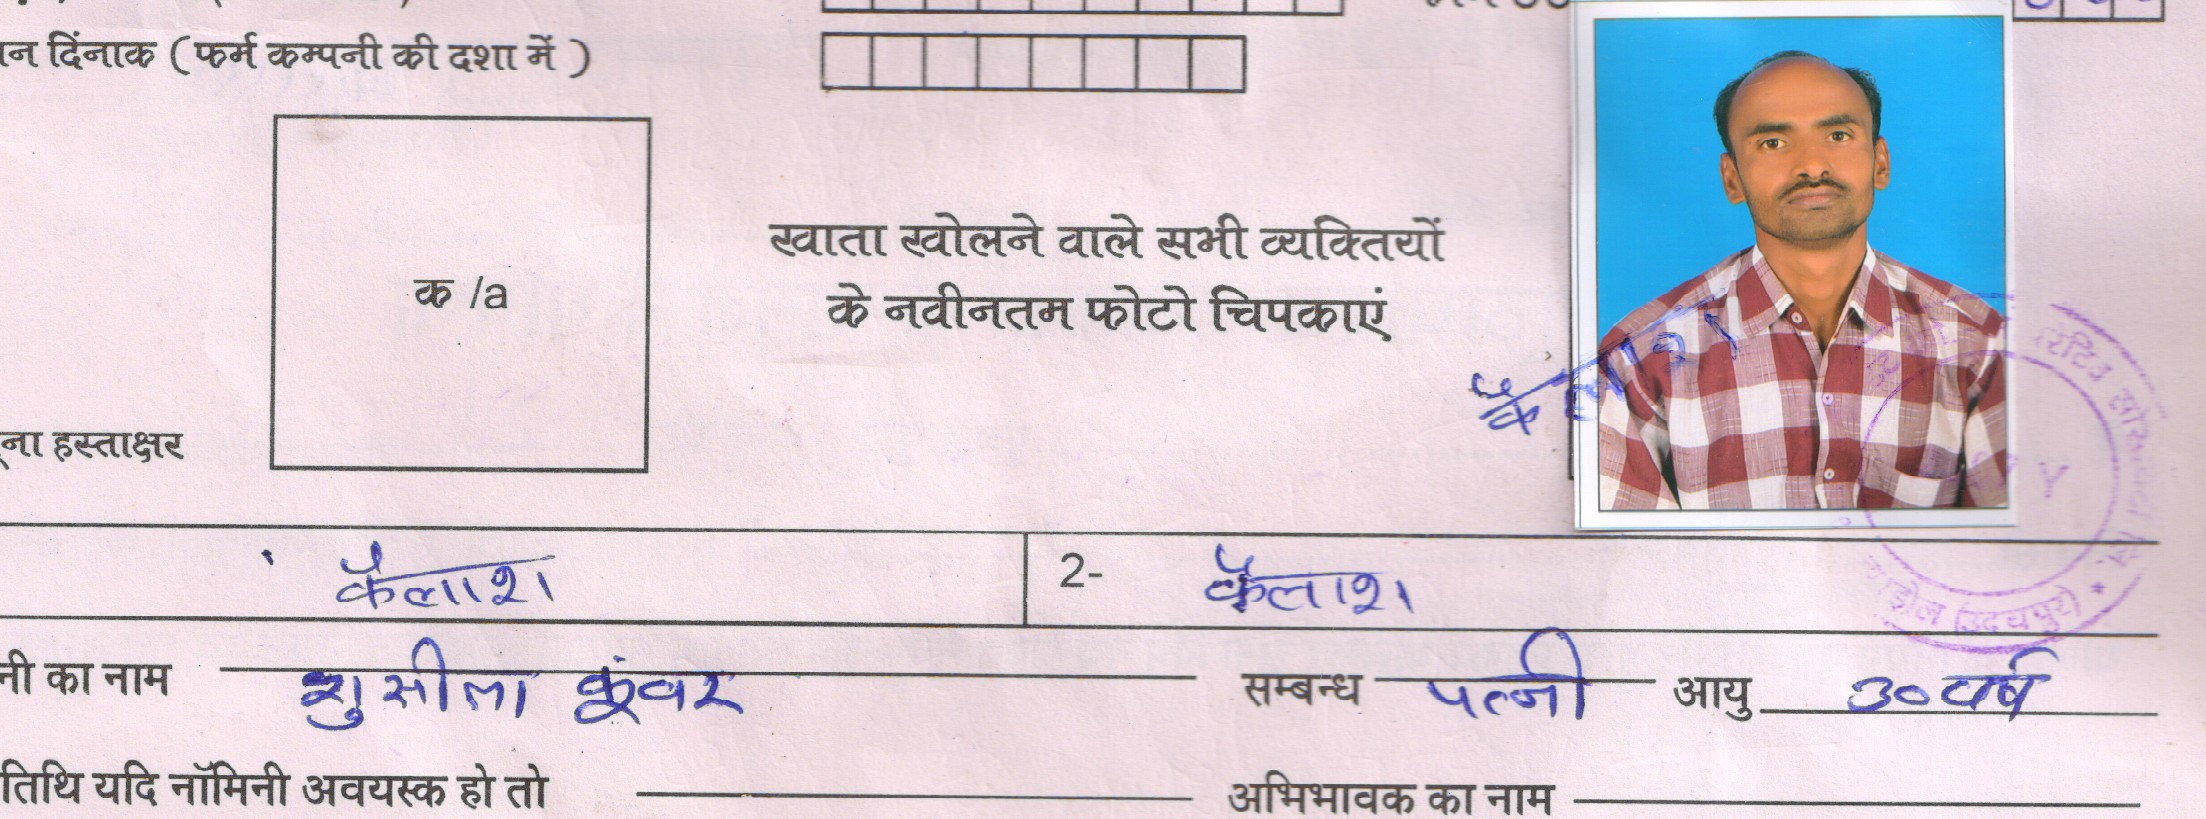 न दिंनाक ( फर्म कम्पनी की दशा में )
क /a
खाता खोलने वाले सभी व्यक्तियों
के नवीनतम फोटो चिपकाएं
कैलाश
ना हस्ताक्षर
कैलाश 2- कैलाश
नी का नाम शुसीला कूंवर सम्बन्ध पत्नी आयु 30 वर्ष
तिथि यदि नॉमिनी अवयस्क हो तो अभिभावक का नाम
(उदयपुर) *